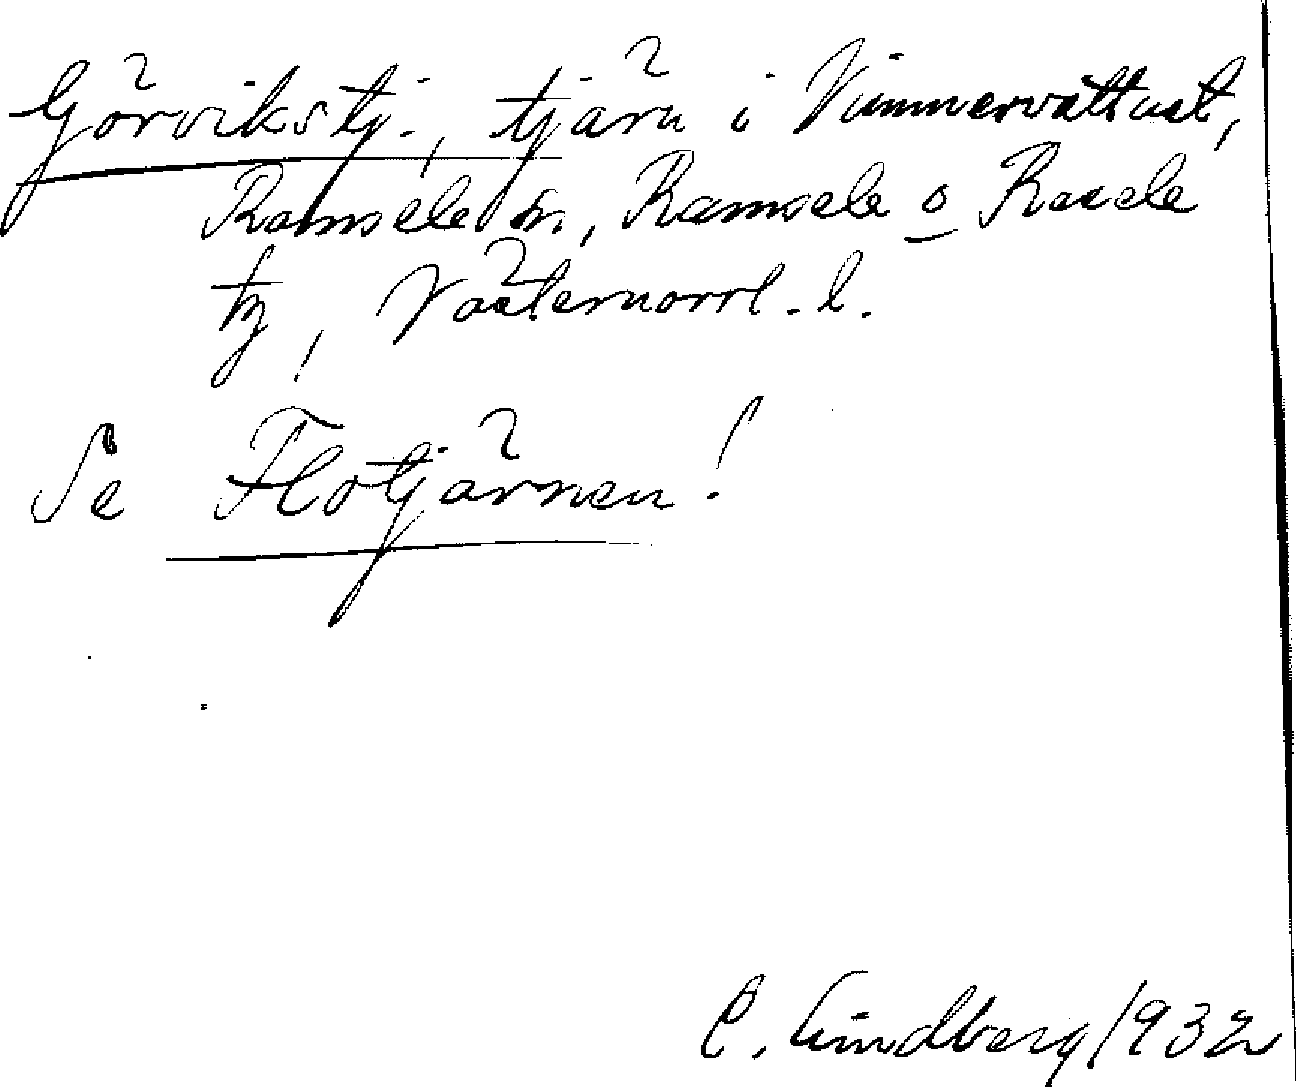 Görvikstj., tjärn i Vimmervattnet,
Ramsele sn, Ramsele o Resele
tg, Västernorrl. l.
Se Flotjärnen!
C. Lindberg 1932